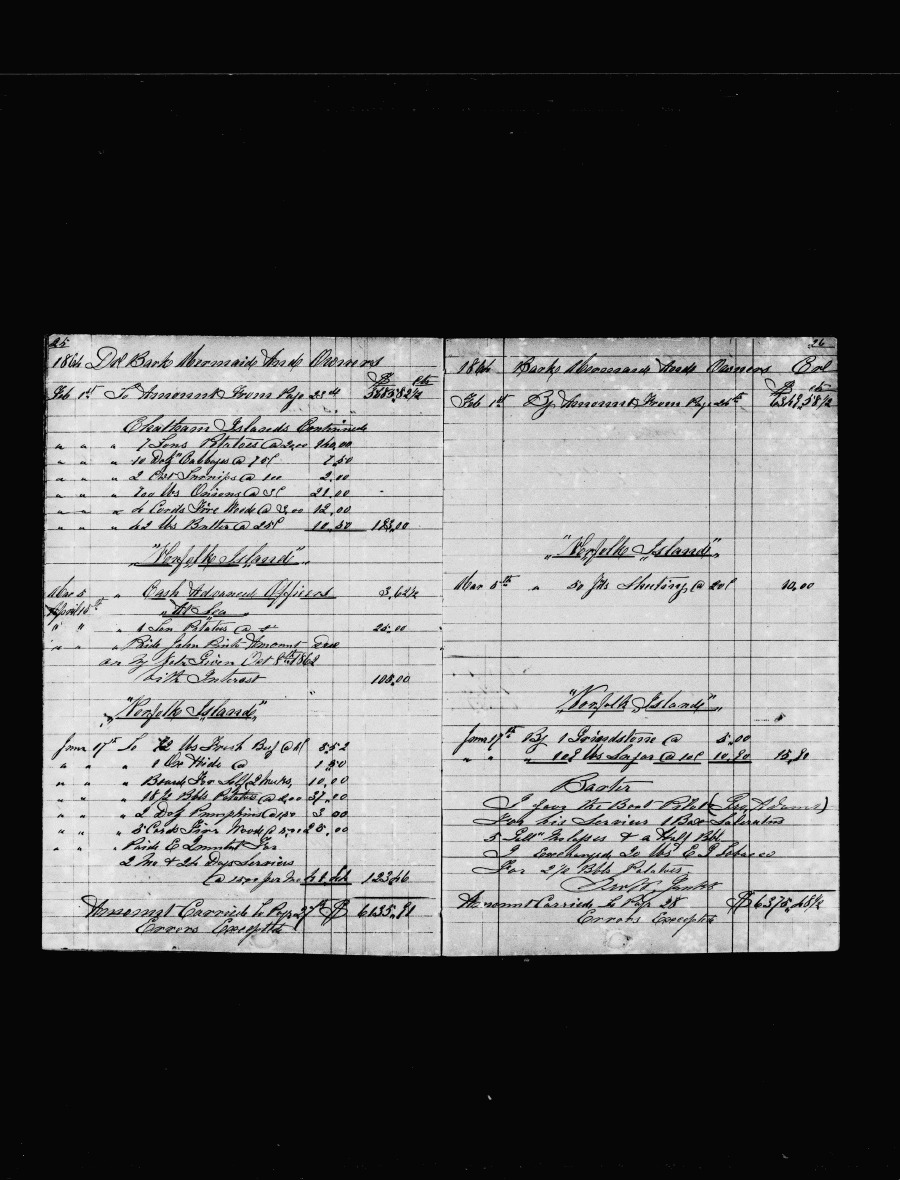 25
1864 Dr Bark Mermaid And Owners
$ cts
Feb 1st To Amount From Page 23rd 5685,82½
Chatham Islands Continued
" " " 7 Tons Potatoes @ 20,00 140,00
" " " 10 Doz Cabbages @ 75¢ 7,50
" " " 2 Cwt Turnips @ 1 00 2,00
" " " 700 lbs Onions @ 3¢ 21,00
" " " 4 Cords Fire Wood @ 3,00 12,00
" " " 42 lbs Butter @ 25¢ 10,50 193,00
"Norfolk Island"
Mar 5 " Cash Advanced Officers 3,62½
April 15th "At Sea"
" " " 1 Ton Potatoes @ 25,00
" " " Paid John Amount Due
Given Oct 1863
With Interest 105,00
"Norfolk Island"
June 17th To 92 lbs Fresh Beef @ 6¢ 5,52
" " " 1 Ox Hide @ 1,50
" " " Boards For 10,00
" " " 18½ Bbls Potatoes @ 2,00 37,00
" " " 2 Doz Pumpkins @ 1,50 3 00
" " " 5 Cords Fire Wood @ 5,00 25,00
" " " Paid E For
2 Mo & 24 Days Services
@ per Mo 123,46
Amount Carried to Page 27th $ 6135,91
Errors Excepted
26
1864 Bark Mermaid And Owners Cr
$ cts
Feb 1st By Amount From Page 24th 6349,58½
"Norfolk Island"
Mar 5th " 50 yds Sheeting @ 20¢ 10,00
"Norfolk Island"
June 17th By 1 Grindstone @ 5,00
" " " 108 lbs Sugar @ 10¢ 10,80 15,80
Barter
I gave the Boat Pilot (Geo Adams)
For his Services 1 Box Saleratus
5 Gall Molasses & a Half Bbl
I Exchanged 20 lbs Tobacco
For 2½ Bbls Potatoes
Amount Carried to Page 28 $6375,48½
Errors Excepted